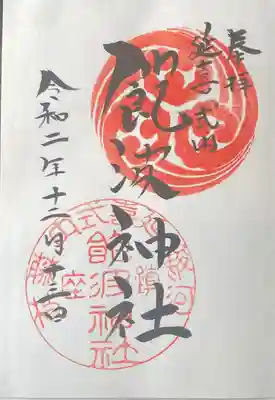 奉拝
延喜式内
飽波神社
令和二年十二月十三日
飽波神社